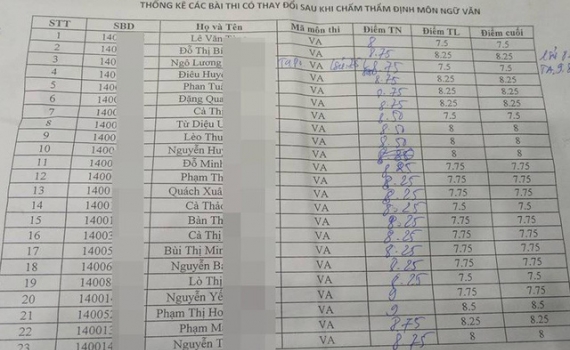 THỐNG KÊ CÁC BÀI THI CÓ THAY ĐỔI SAU KHI CHẤM THẨM ĐỊNH MÔN NGỮ VĂN
STT SBD Họ và Tên Mã môn thi Điểm TN Điểm TL Điểm cuối
1 140 Lê Văn VA 8 7.5 7.5
2 140 Đỗ Thị Bì VA 8.75 8.25 8.25
3 1400 Ngô Lương VA 8.75 7.5 7.5
4 1400 Điêu Huyề VA 8.75 8.25 8.25
5 1400 Phan Tuấ VA 8.75 8.25 8.25
6 1400 Đặng Qua VA 8.75 8.25 8.25
7 1400 Cà Thị VA 8.50 7.5 7.5
8 1400 Từ Diệu VA 8.50 8 8
9 1400 Lèo Thu VA 8.50 8 8
10 1400 Nguyễn Huy VA 8 8
11 1400 Đỗ Minh VA 8.25 7.75 7.75
12 1400 Phạm Th VA 8.25 7.75 7.75
13 1400 Quách Xuâ VA 8.25 7.75 7.75
14 1400 Cà Thảo VA 8.25 7.5 7.5
15 14001 Bàn Th VA 8.25 7.75 7.75
16 14003 Cà Thị VA 8.25 7.75 7.75
17 14005 Bùi Thị Min VA 8.25 7.75 7.75
18 14006 Nguyễn Bá VA 8.25 7.75 7.75
19 14008 Lò Thị VA 8.25 7.5 7.5
20 140014 Nguyễn Yế VA 9 7.75 7.75
21 140052 Phạm Thị Ho VA 9 8.5 8.5
22 140013 Phạm M VA 8.75 8.25 8.25
23 140014 Nguyễn T VA 8.75 8 8